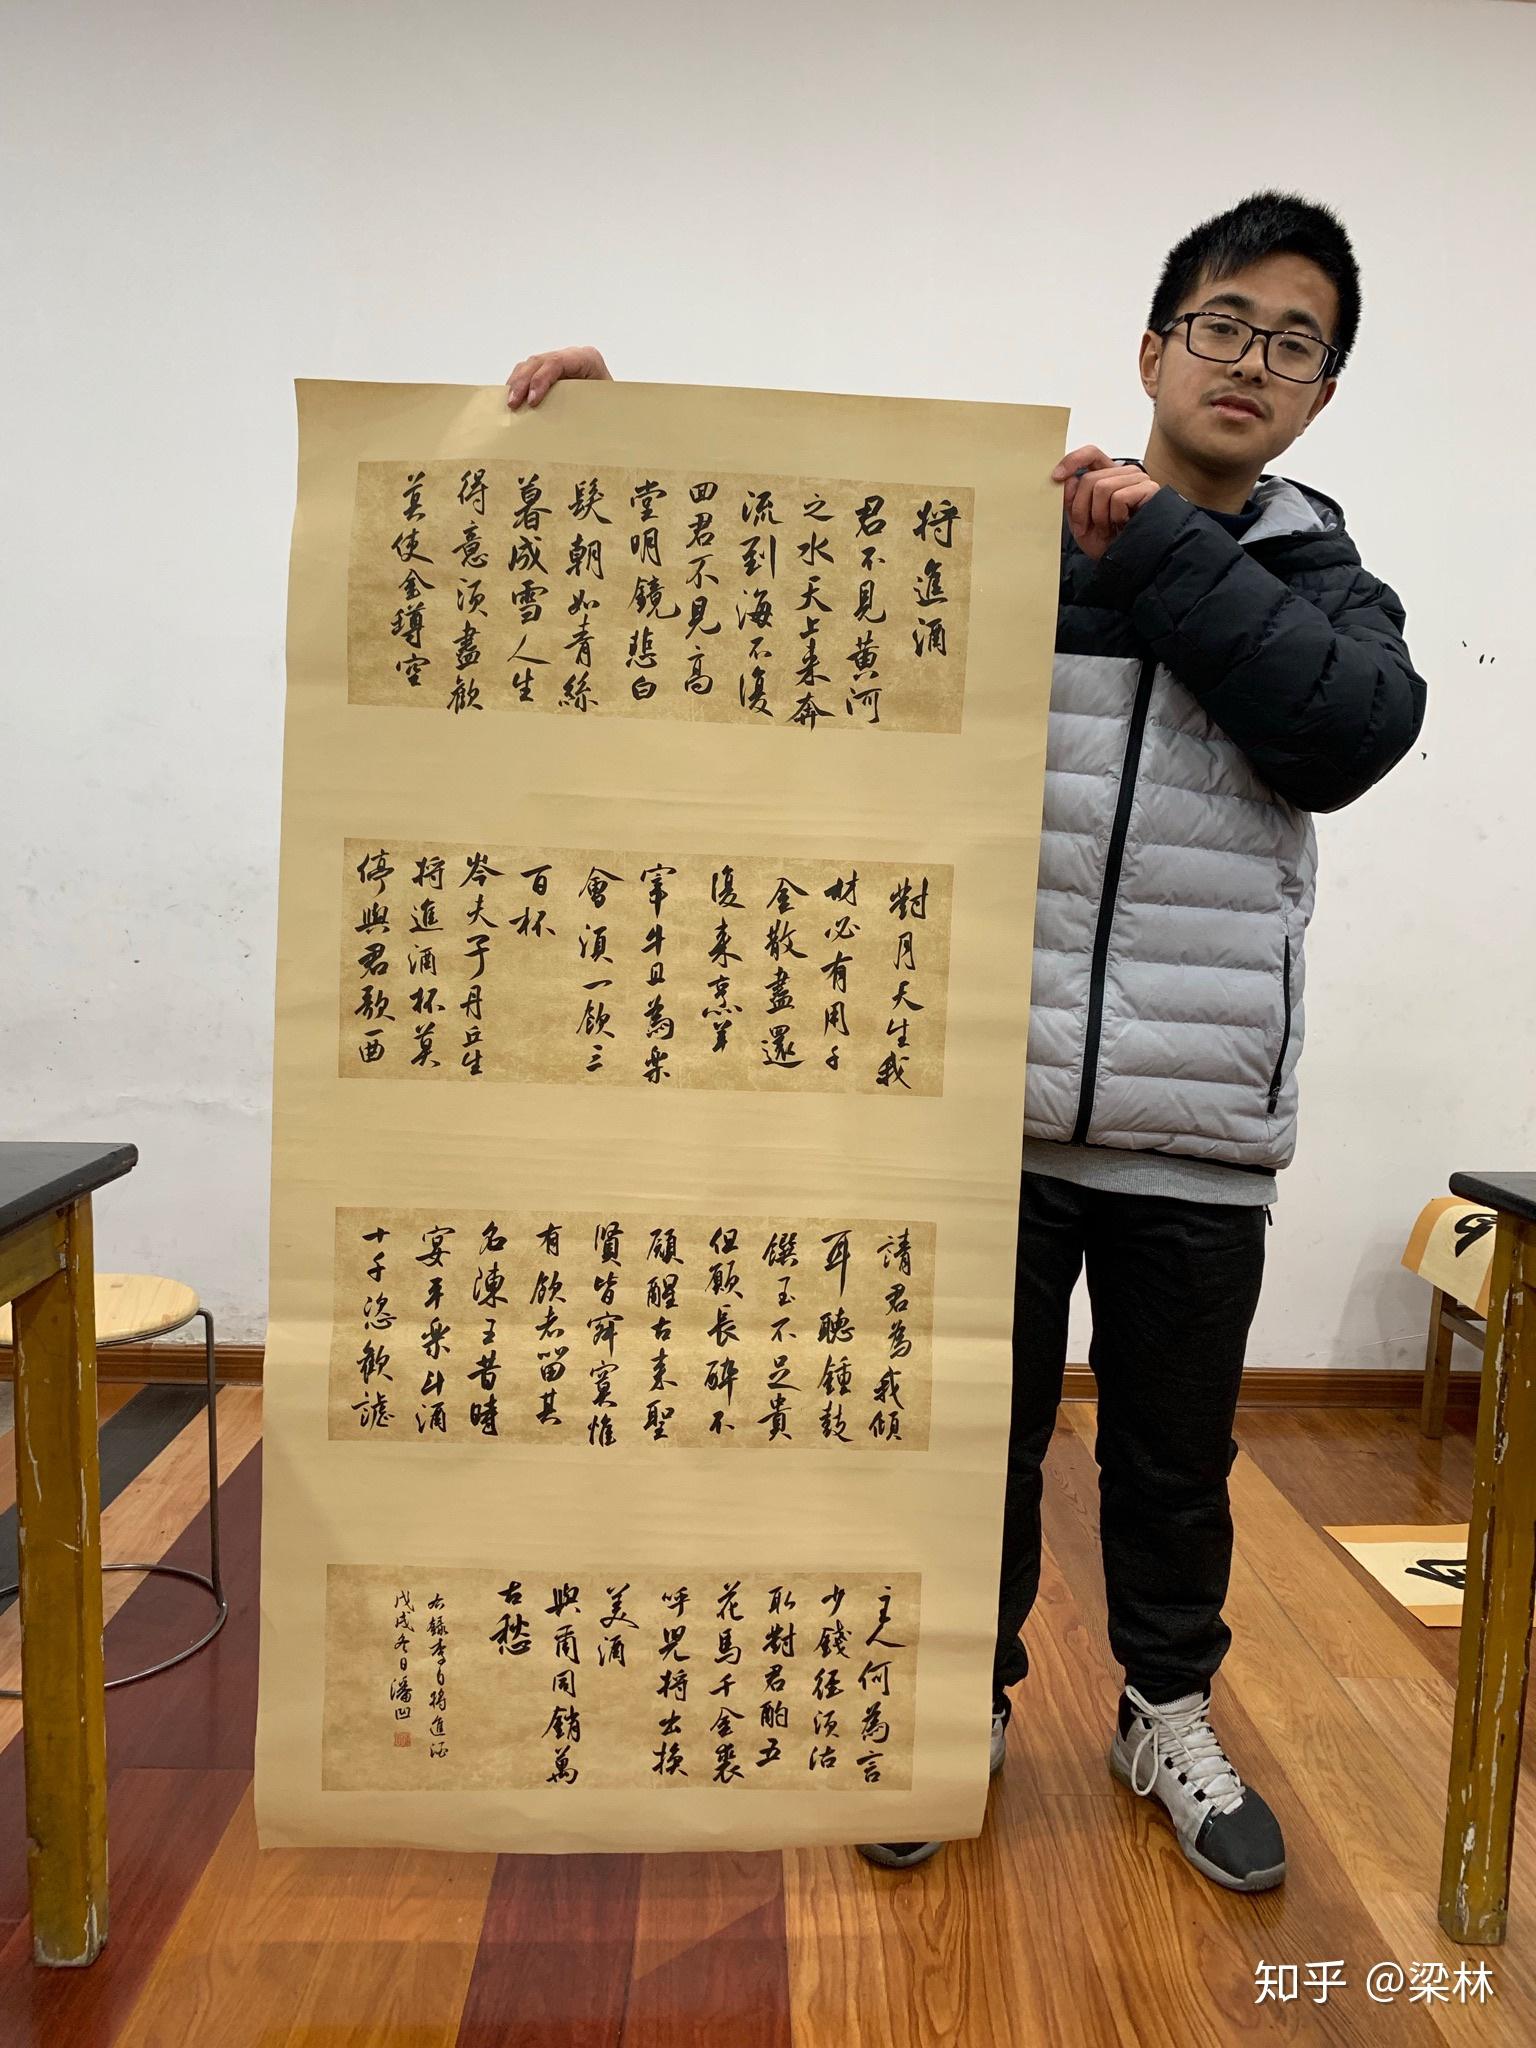 将進酒
君不見黄河
之水天上来奔
流到海不復
回君不見高
堂明鏡悲白
髮朝如青絲
暮成雪人生
得意須盡歡
莫使金樽空
對月天生我
材必有用千
金散盡還
復来烹羊
宰牛且為樂
會須一飲三
百杯
岑夫子丹丘生
将進酒杯莫
停與君歌一曲
請君為我傾
耳聽鍾鼓
饌玉不足貴
但願長醉不
願醒古来聖
賢皆寂寞惟
有飲者留其
名陳王昔時
宴平樂斗酒
十千恣歡謔
主人何為言
少錢徑須沽
取對君酌五
花馬千金裘
呼兒将出换
美酒
與爾同銷萬
古愁
右録李白将進酒
戊戌冬日潘凹
知乎 @梁林